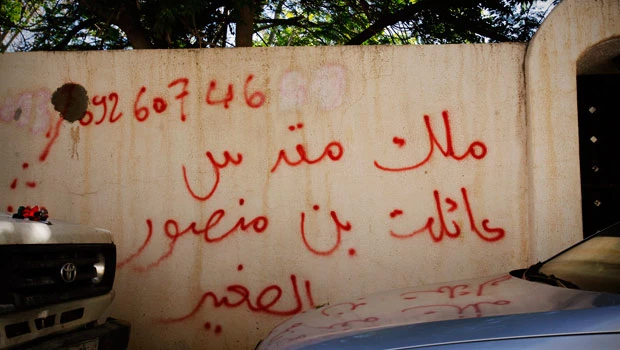 692 607 46
ملك مقدس
عائلت بن منصور
الصغير